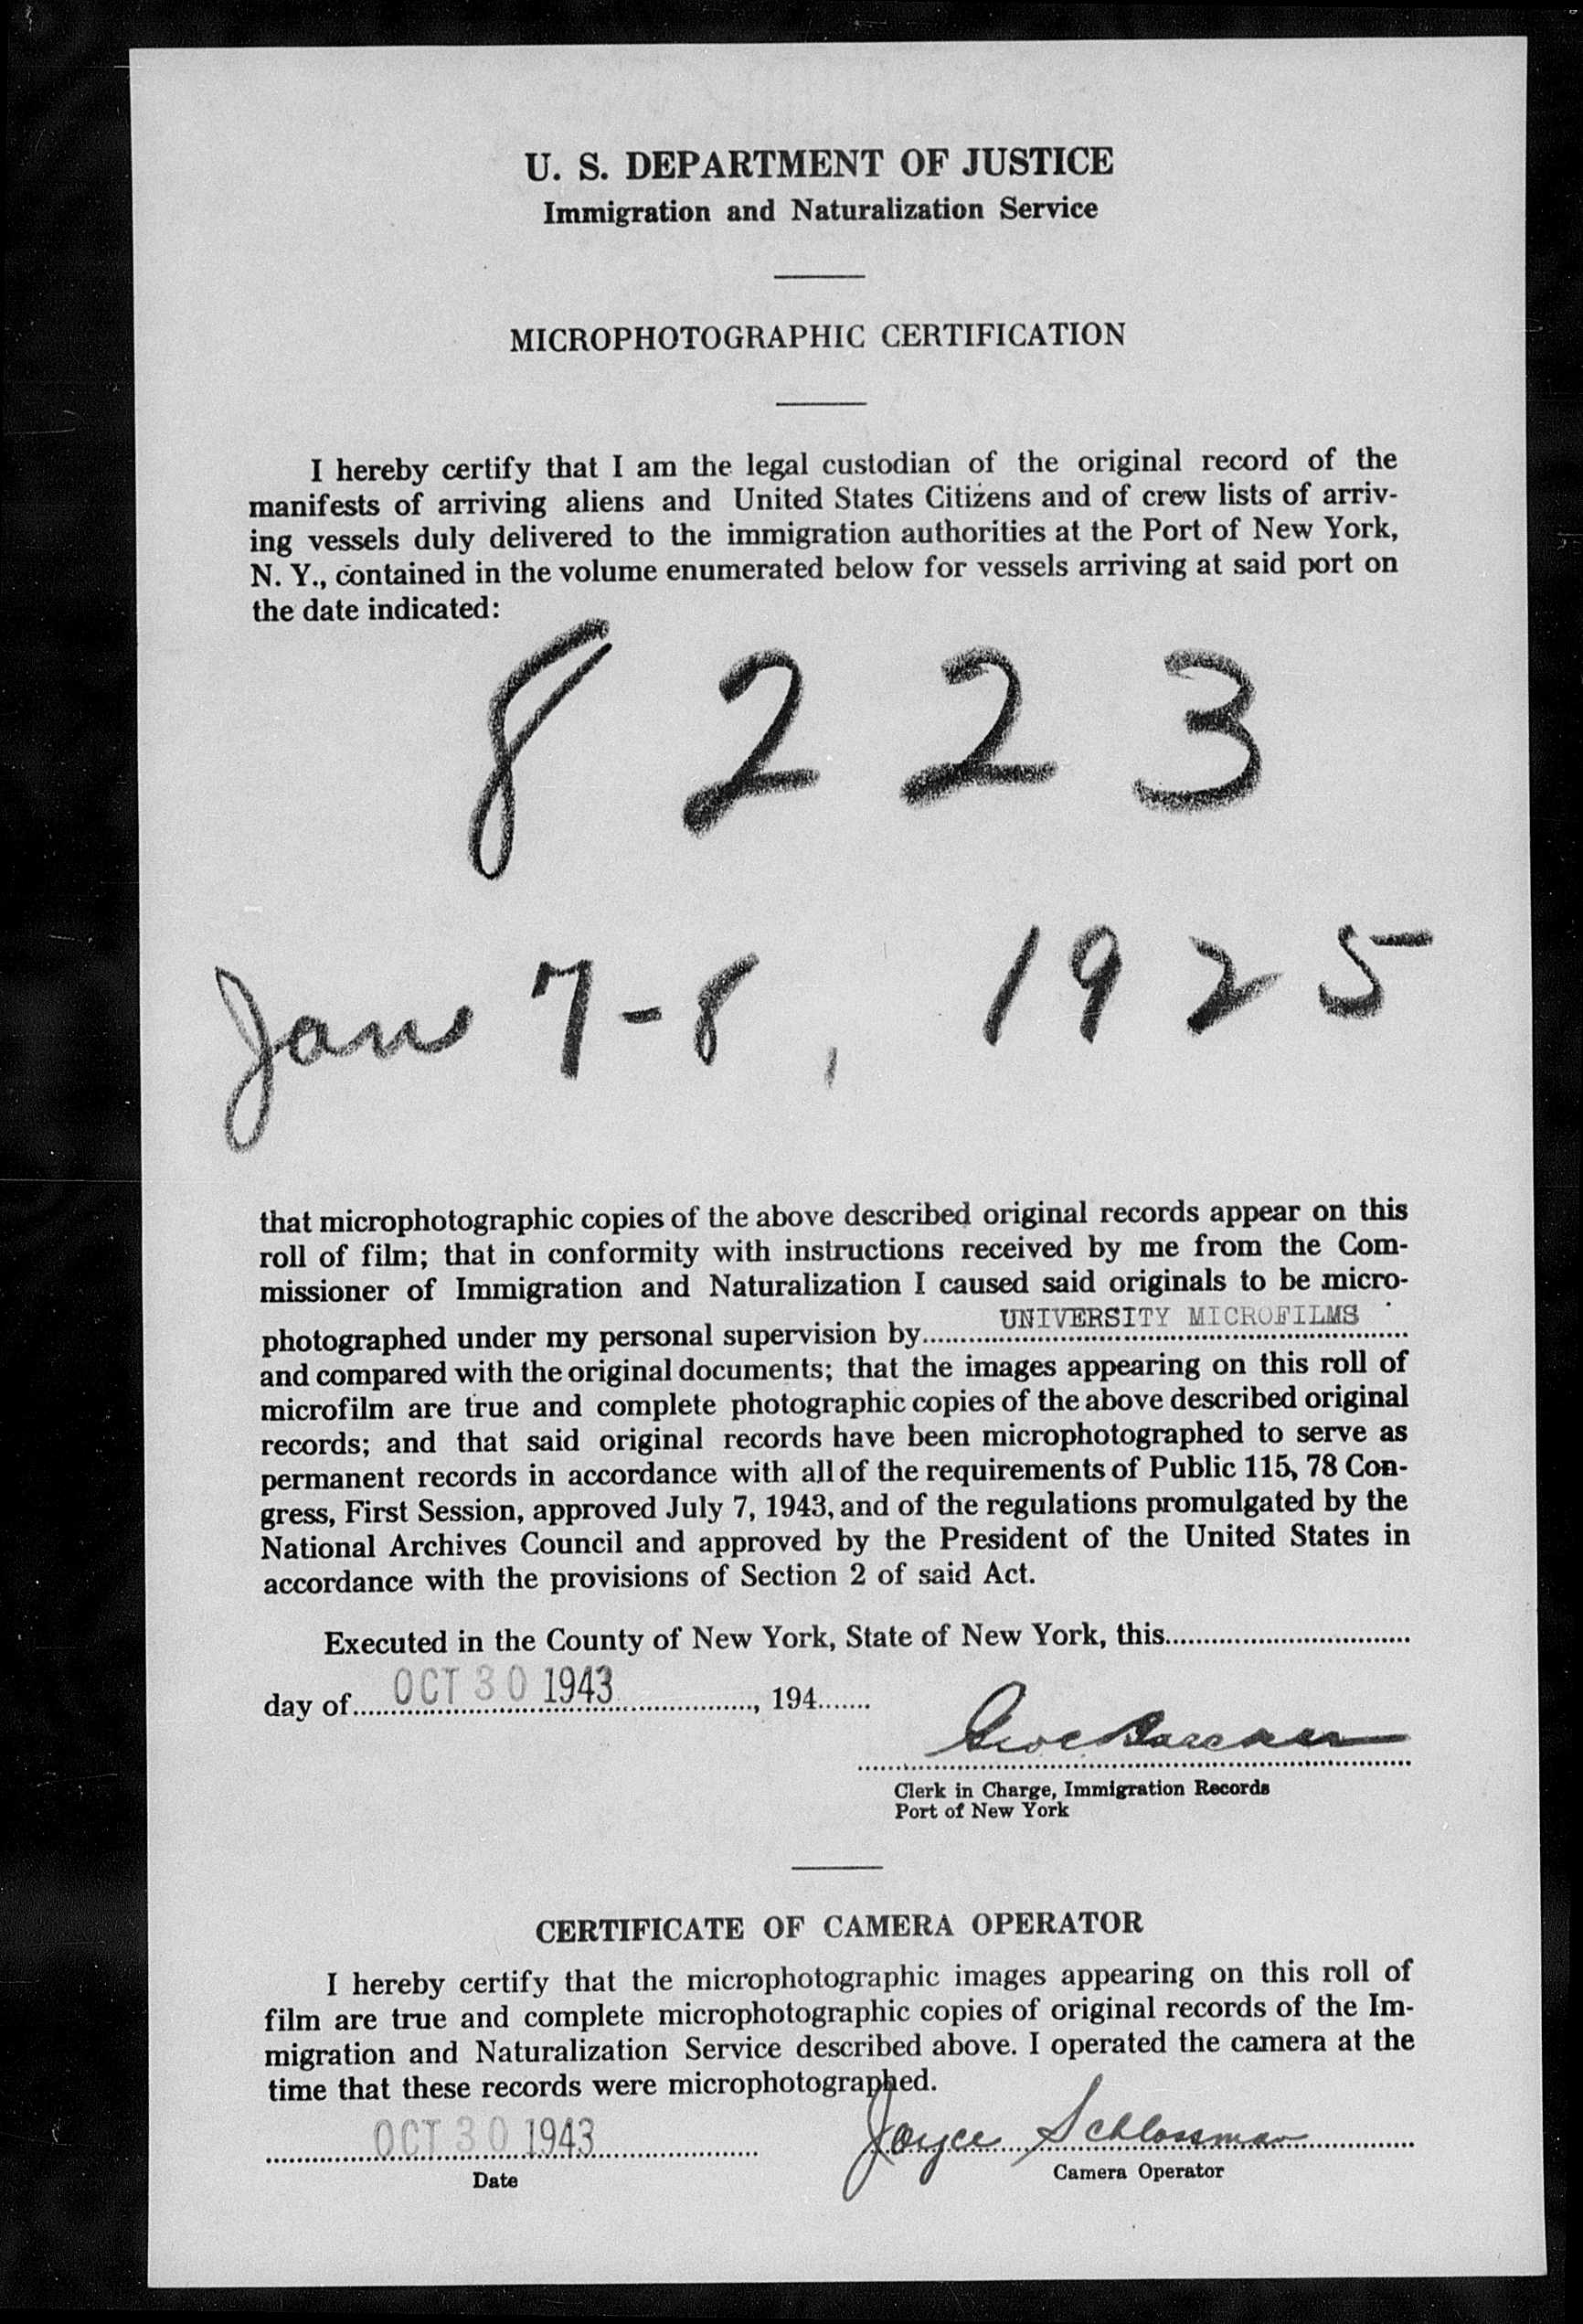 U. S. DEPARTMENT OF JUSTICE
Immigration and Naturalization Service
MICROPHOTOGRAPHIC CERTIFICATION
I hereby certify that I am the legal custodian of the original record of the
manifests of arriving aliens and United States Citizens and of crew lists of arriv-
ing vessels duly delivered to the immigration authorities at the Port of New York,
N. Y., contained in the volume enumerated below for vessels arriving at said port on
the date indicated:
8 2 2 3
Jan 7-8, 1925
that microphotographic copies of the above described original records appear on this
roll of film; that in conformity with instructions received by me from the Com-
missioner of Immigration and Naturalization I caused said originals to be micro-
photographed under my personal supervision by UNIVERSITY MICROFILMS
and compared with the original documents; that the images appearing on this roll of
microfilm are true and complete photographic copies of the above described original
records; and that said original records have been microphotographed to serve as
permanent records in accordance with all of the requirements of Public 115, 78 Con-
gress, First Session, approved July 7, 1943, and of the regulations promulgated by the
National Archives Council and approved by the President of the United States in
accordance with the provisions of Section 2 of said Act.
Executed in the County of New York, State of New York, this
day of OCT 30 1943, 194
Clerk in Charge, Immigration Records
Port of New York
CERTIFICATE OF CAMERA OPERATOR
I hereby certify that the microphotographic images appearing on this roll of
film are true and complete microphotographic copies of original records of the Im-
migration and Naturalization Service described above. I operated the camera at the
time that these records were microphotographed.
OCT 30 1943 Joyce Schlossman
Date Camera Operator